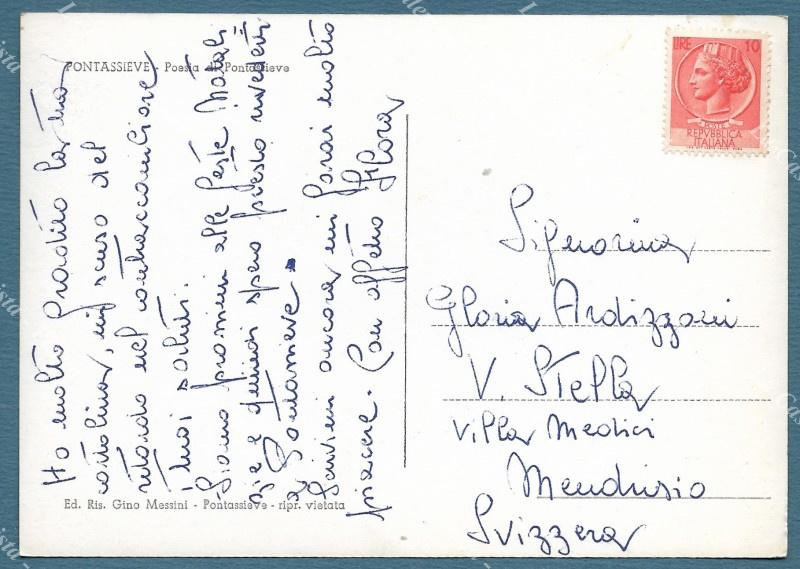 PONTASSIEVE - Poesia di Pontassieve
Ho molto gradito la tua
cartolina, mi scuso del
ritardo nel contraccambiare
i tuoi saluti.
Siamo prossimi alle feste Natali
zie e quindi spero presto rivederti
a
Scrivimi ancora mi farai molto
piacere. Con affetto Flora
Ed. Ris. Gino Messini - Pontassieve - ripr. vietata
LIRE 10
POSTE
REPVBBLICA
ITALIANA
Signorina
Gloria Ardizzoni
V. Stella
Villa Medici
Mendrisio
Svizzera